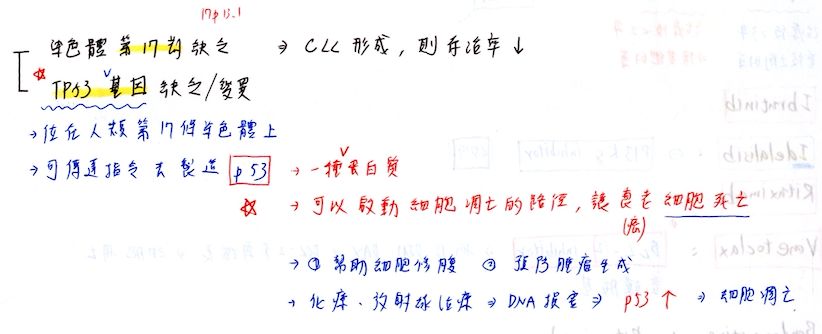 17p13.1
染色體第17對缺乏 → CLL 形成，則存活率↓
☆ TP53 基因 缺乏/變異
→ 位在人類第17條染色體上
→ 可傳遞指令去製造 p53 → 一種蛋白質
☆ → 可以啟動細胞凋亡的路徑，讓患者細胞死亡
(癌)
→ ① 幫助細胞修復 ② 預防腫瘤生成
→ 化療、放射球治療 → DNA 損害 → p53 ↑ → 細胞凋亡
Ibrutinib
Idelalisib
PI3Kδ inhibitor
Rituximab
Venetoclax